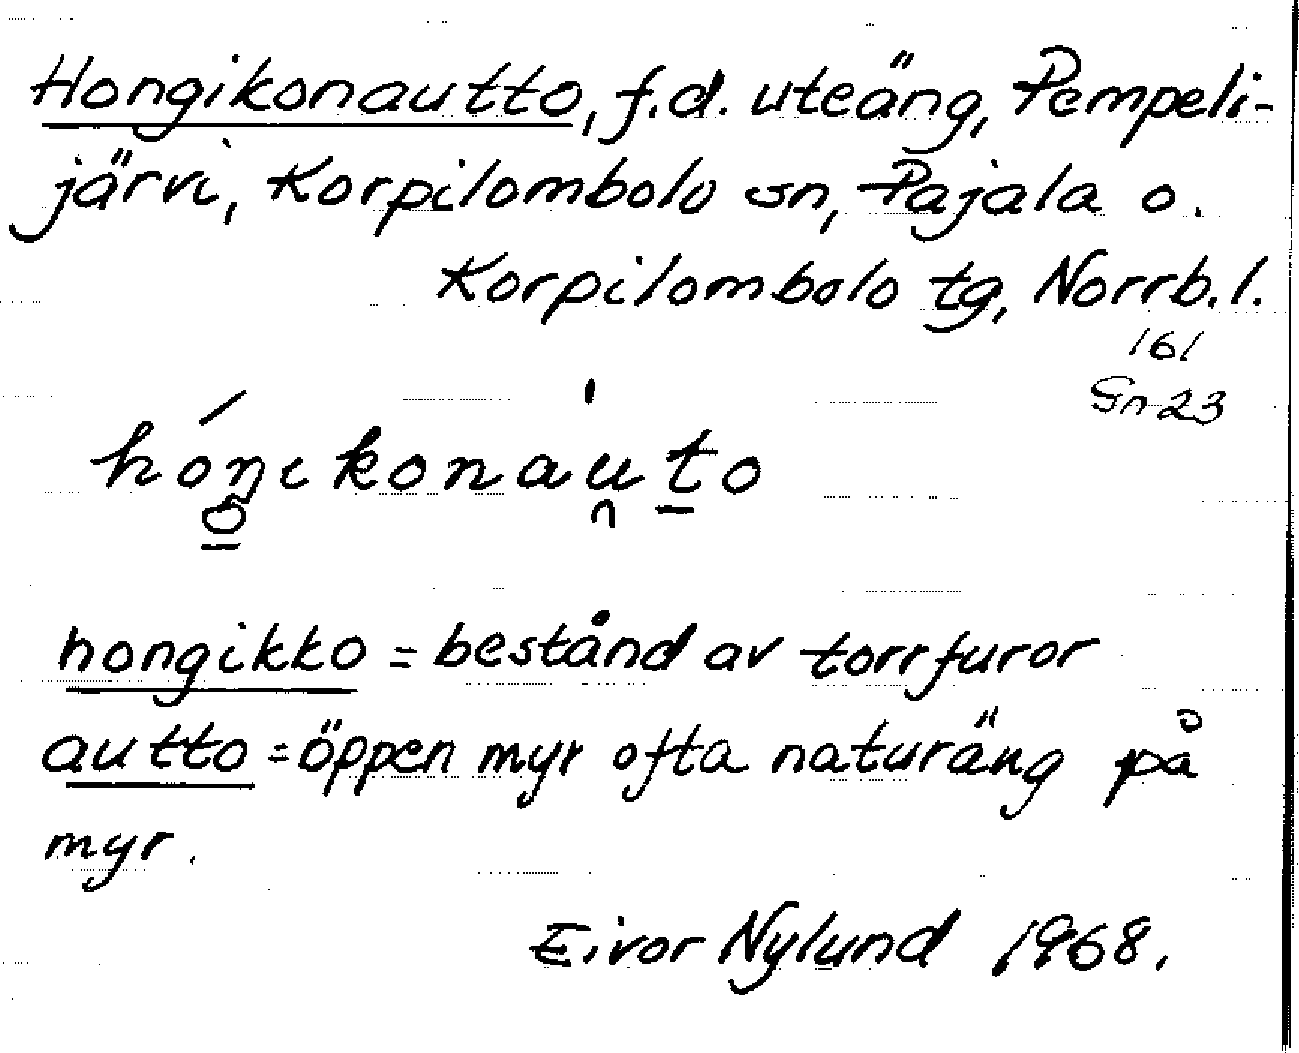 Hongikonautto, f.d. uteäng, Pempeli-
järvi, Korpilombolo sn, Pajala o.
Korpilombolo tg, Norrb. l.
161
Gn 23
hóŋikonauto
hongikko = bestånd av torrfuror
autto = öppen myr ofta naturäng på
myr.
Eivor Nylund 1968.